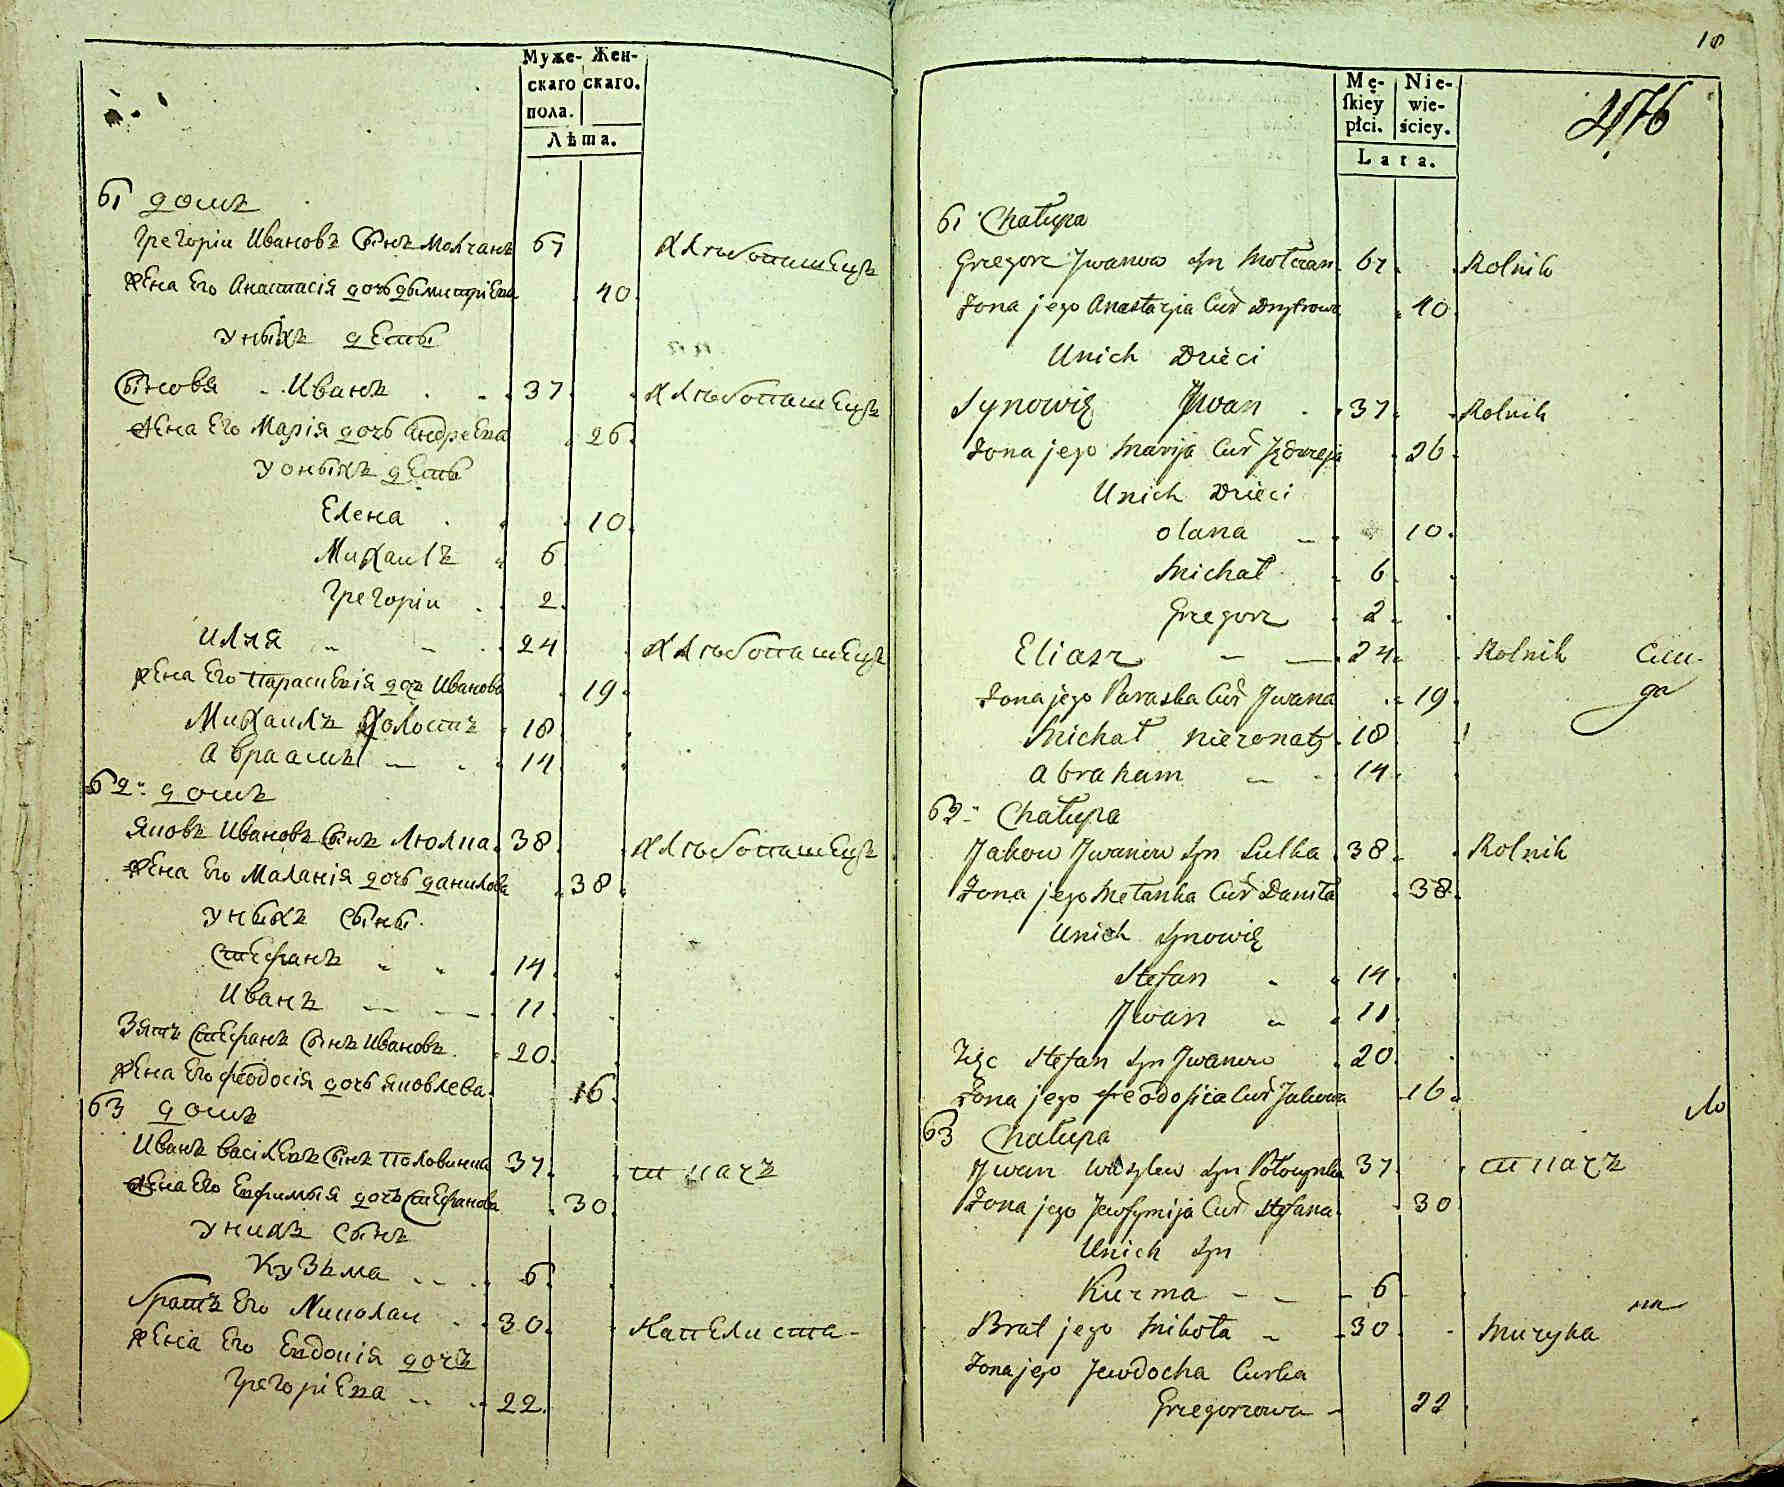 Муже- Жен-
скаго скаго.
пола.
Лѣта.
61 домъ
Григоріи Ивановъ Сынъ Молчанъ 67 Хлѣбопашецъ
Жена Его Анастасія дочь Дымитріева 40
У ныхъ деты
Сыновя Иванъ 37 Хлѣбопашецъ
Жена Его Марія дочь Андреева 26
У оныхъ деты
Елена 10
Михаилъ 6
Григоріи 2
Илля 24 Хлѣбопашецъ
Жена Его Парасковія дочь Иванова 19
Михаилъ Холостъ 18
Авраамъ 14
62 домъ
Яковъ Ивановъ Сынъ Люлка 38 Хлѣбопашецъ
Жена Его Маланія дочь Данилова 38
У ныхъ Сыны
Стефанъ 14
Иванъ 11
Зять Стефанъ Сынъ Ивановъ 20
Жена Его Феодосія дочь Яковлева 16
63 домъ
Иванъ Василевъ Сынъ Половинка 37 ткачъ
Жена Его Евфимыя дочь Стефанова 30
У нихъ Сынъ
Кузьма 6
братъ Его Николаи 30 Капелиста
Жена Его Евдокія дочъ
Григоріева 22
18
Mę- Nie-
skiey wie-
płci. ściey.
Lata.
476
61 Chałupa
Grzegorz Jwanow Syn Mołczan 67 Rolnik
Żona jego Anastazyia Cur Dmytrowa 40
Unich Dzieci
Synowie Jwan 37 Rolnik
Żona jego Marija Cur Jędrzeja 26
Unich Dzieci
Olana 10
Michał 6
Grzegorz 2
Eliasz 24 Rolnik Слу-
га
Żona jego Paraska Cur Jwana 19
Michał nieżonaty 18
Abraham 14
62 Chałupa
Jakow Jwanow Syn Lulka 38 Rolnik
Żona jego Mełanka Cur Daniła 38
Unich Synowie
Stefan 14
Jwan 11
Zięc Stefan Syn Jwanow 20
Żona jego Feodosia Cur Jakowa 16
63 Chałupa
Jwan Wasylew Syn Połowynka 37 ткачъ
Żona jego Jewfymija Cur Stefana 30
Unich Syn
Kuzma 6
Brat jego Mikoła 30 Muzyka
Żona jego Jewdocha Curka
Grzegorzowa 22